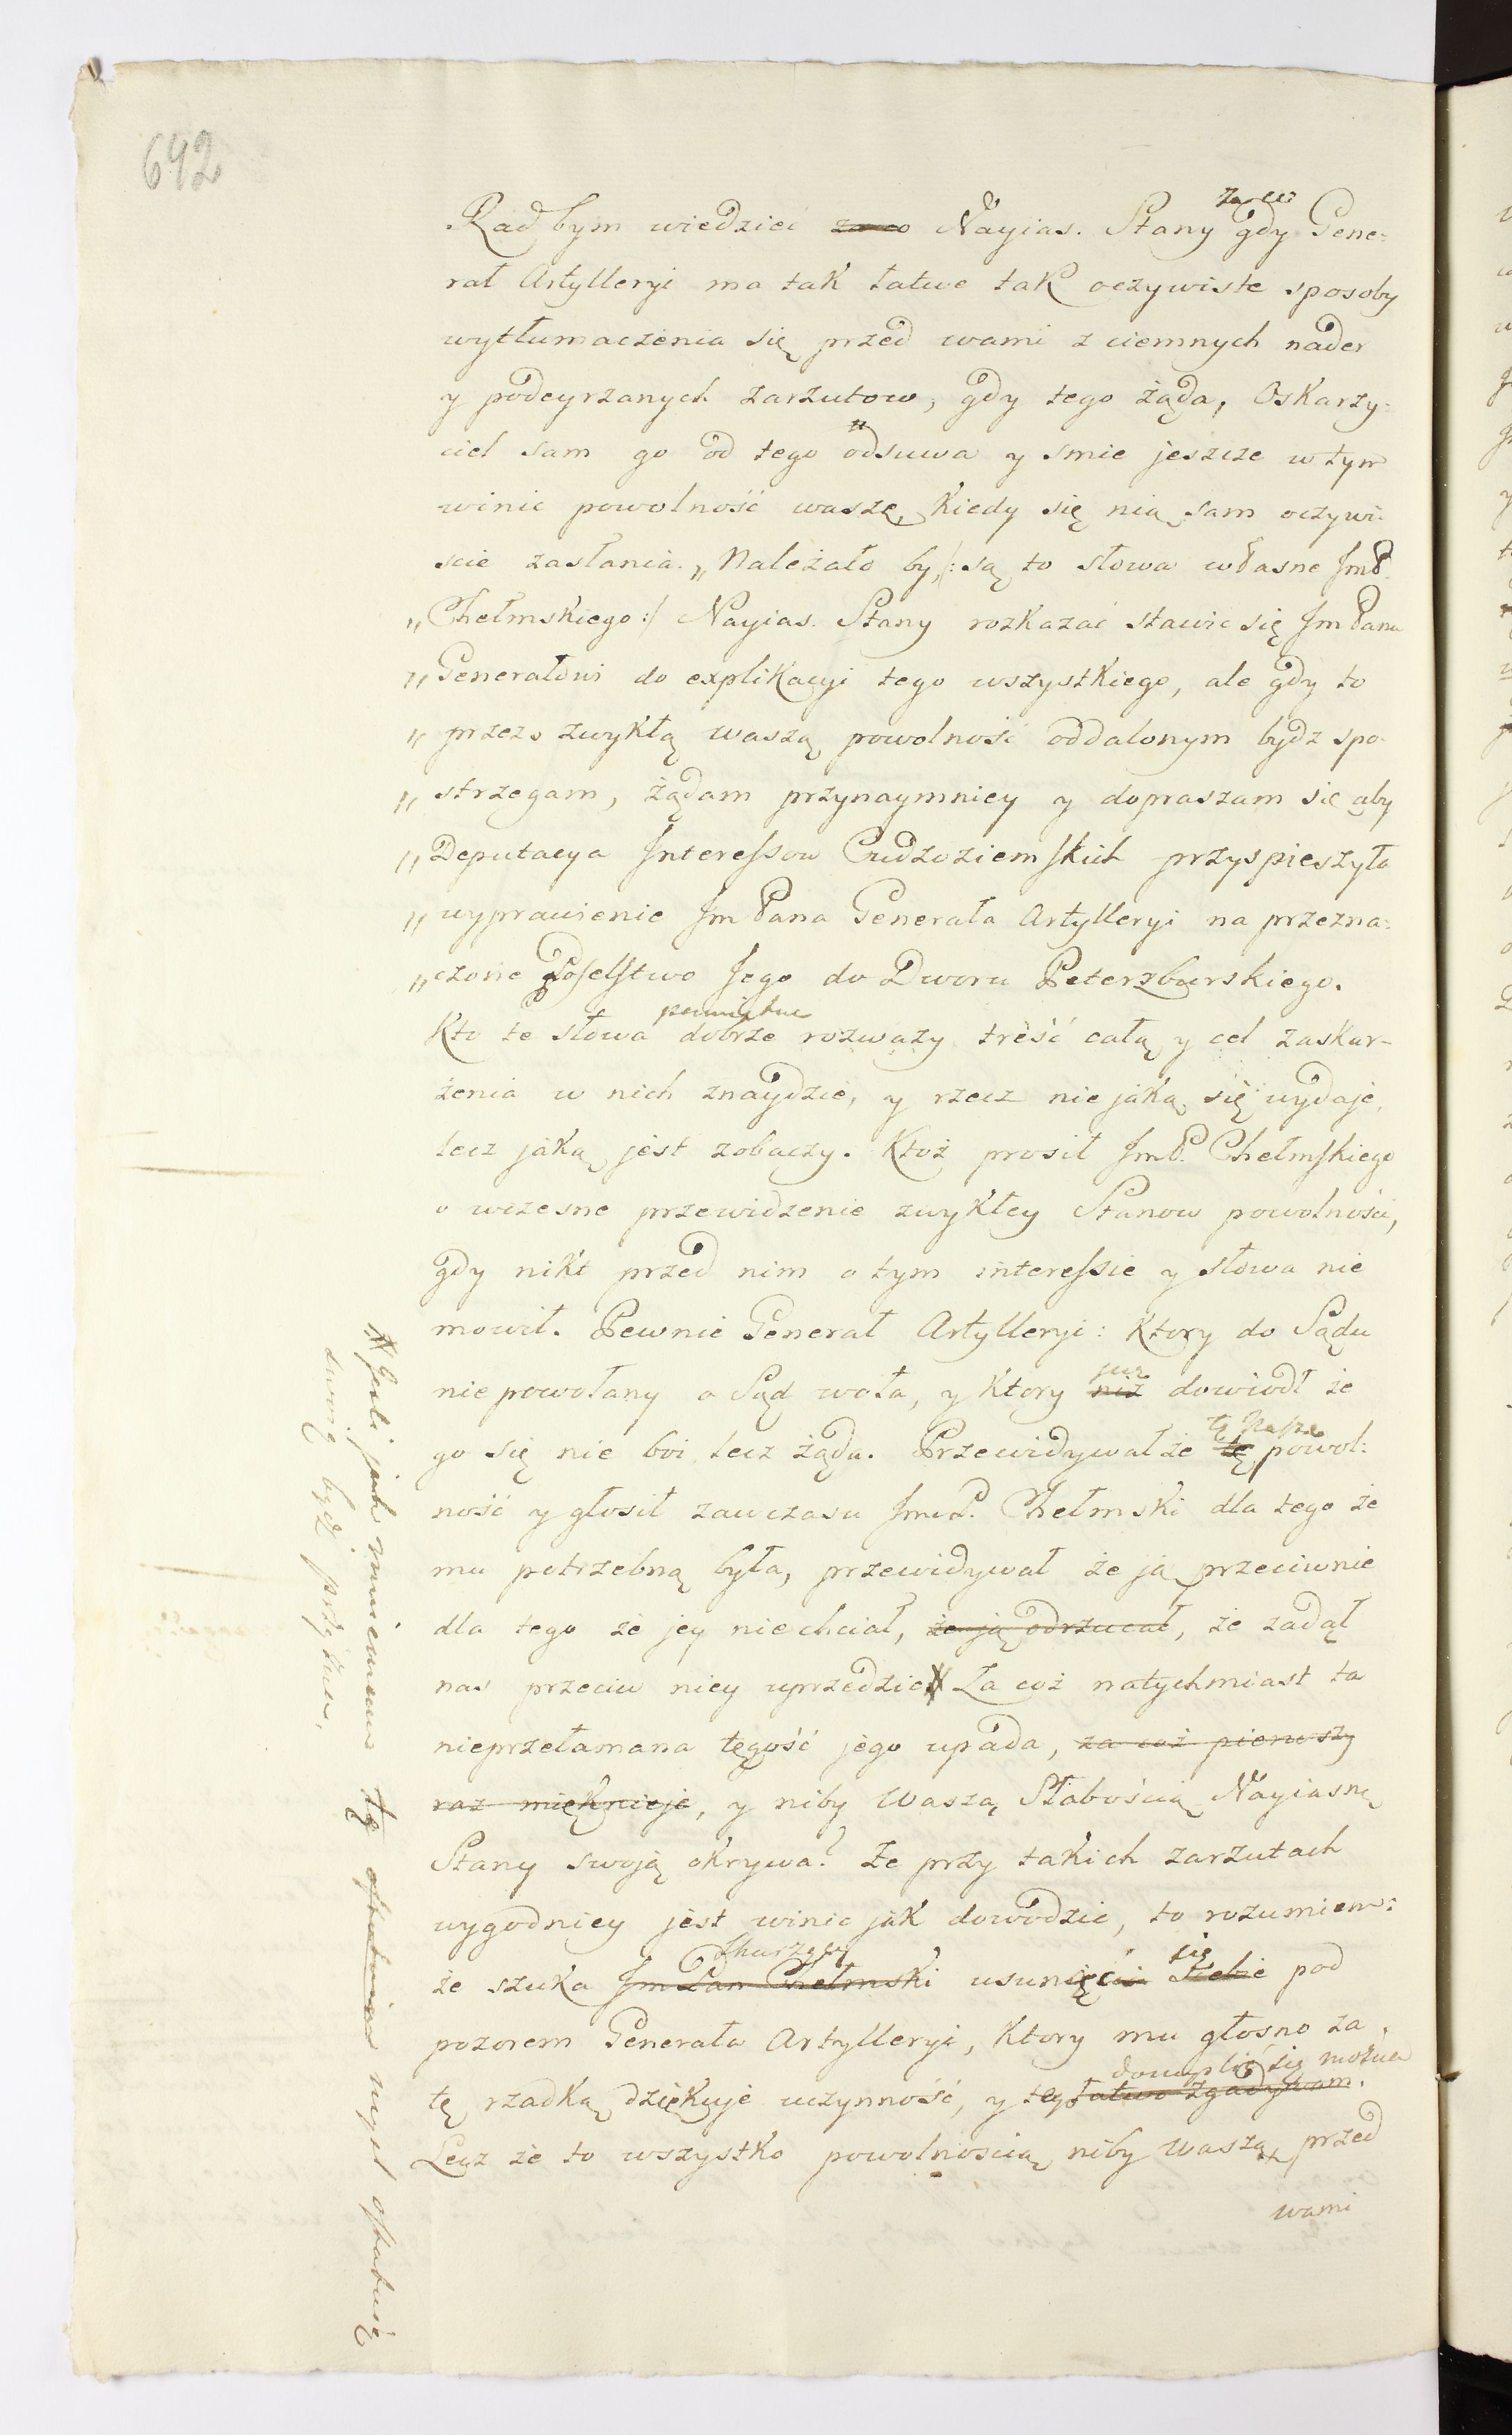 642
za co
Rad bym wiedzieć za co Nayias. Stany gdy Gene:
rał Artylleryi ma tak łatwe tak oczywiste sposoby
wytłumaczenia się przed wami z ciemnych nader
y podeyrzanych zarzutow, gdy tego żąda, Oskarzy:
ciel sam go od tego odsuwa y smie jeszcze w tym
winić powolność waszę, kiedy się nią sam oczywi:
scie zasłania. „Należało by, /: są to słowa własne JmP.
„Chełmskiego :/ Nayias. Stany rozkazać stawić się Jm Panu
„Generałowi do explikacyi tego wszystkiego, ale gdy to
„przez zwykłą waszą powolność oddalonym bydz spo-
„strzegam, żądam przynaymniey y dopraszam się aby
„Deputacya Interessow Cudzoziemskich przyspieszyła
„wyprawienie Jm Pana Generała Artylleryi na przezna:
„czone Poselstwo Jego do Dworu Peterzburskiego.
Kto te słowa dobrze rozważy treść całą y cel zaskar-
żenia w nich znaydzie, y rzecz nie jaką się wydaje,
lecz jaką jest zobaczy. Ktoż prosił JmP. Chełmskiego
o wczesne przewidzenie zwykłey Stanow powolności,
gdy nikt przed nim o tym interessie y słowa nie
mowił. Pewnie Generał Artylleryi: Ktory do Sądu
już
nie powołany o Sąd woła, y Ktory niż dowiodł że
tę Naszę
go się nie boi lecz żąda. Przewidywał że tę powol:
ność y głosił zawczasu JmP. Chełmski dla tego że
mu potrzebną była, przewidywał że ją przeciwnie
dla tego że jey nie chciał, że ją odrzucał, że żądał
nas przeciw niey uprzedzić # Za coż natychmiast ta
nieprzełamana tęgość jego upada, za coż pierwszy
raz mięknieje, y niby Waszą Słabością Nayiasnę
Stany swoją okrywa? Że przy takich zarzutach
wygodniey jest winić jak dowodzić, to rozumiem:
Skarżący się
że szuka Jm Pan Chełmski usunięcia Siebie pod
pozorem Generała Artylleryi, Ktory mu głosno za
domyślić się można
tę rzadką dziękuje uczynność, y tey łatwo zgadywam.
Lecz że to wszystko powolnoscią niby Waszą przed
wami
# Jeśli jak mniemam tę ostatnią myśl ostatnią